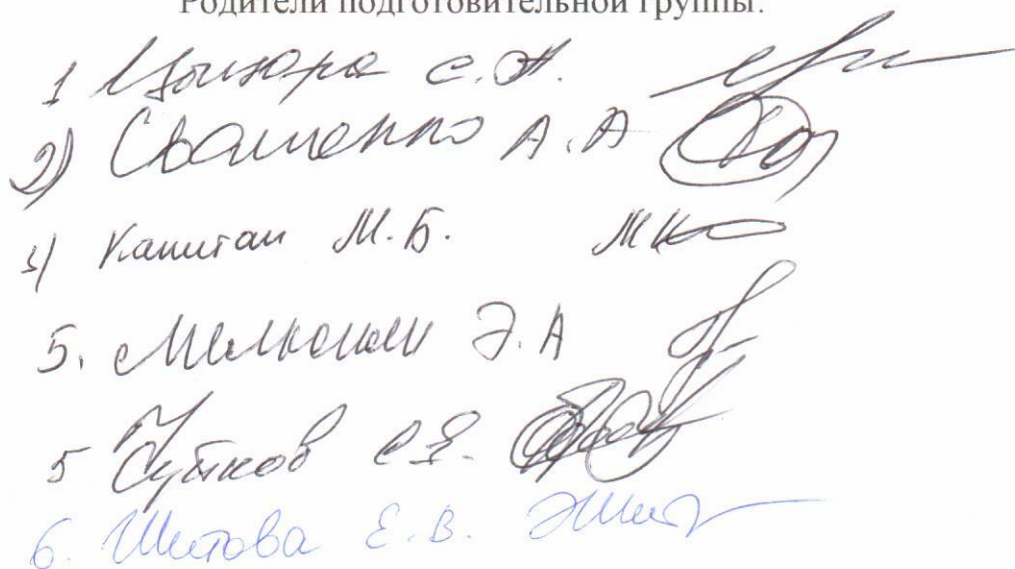 Родители подготовительной группы.
1 Цыцора С.А.
2) Сващенко А.А
3) Капитан М.Б.
5. Мелконян Э.А
5 Чутков С.Я.
6. Шитова Е.В.